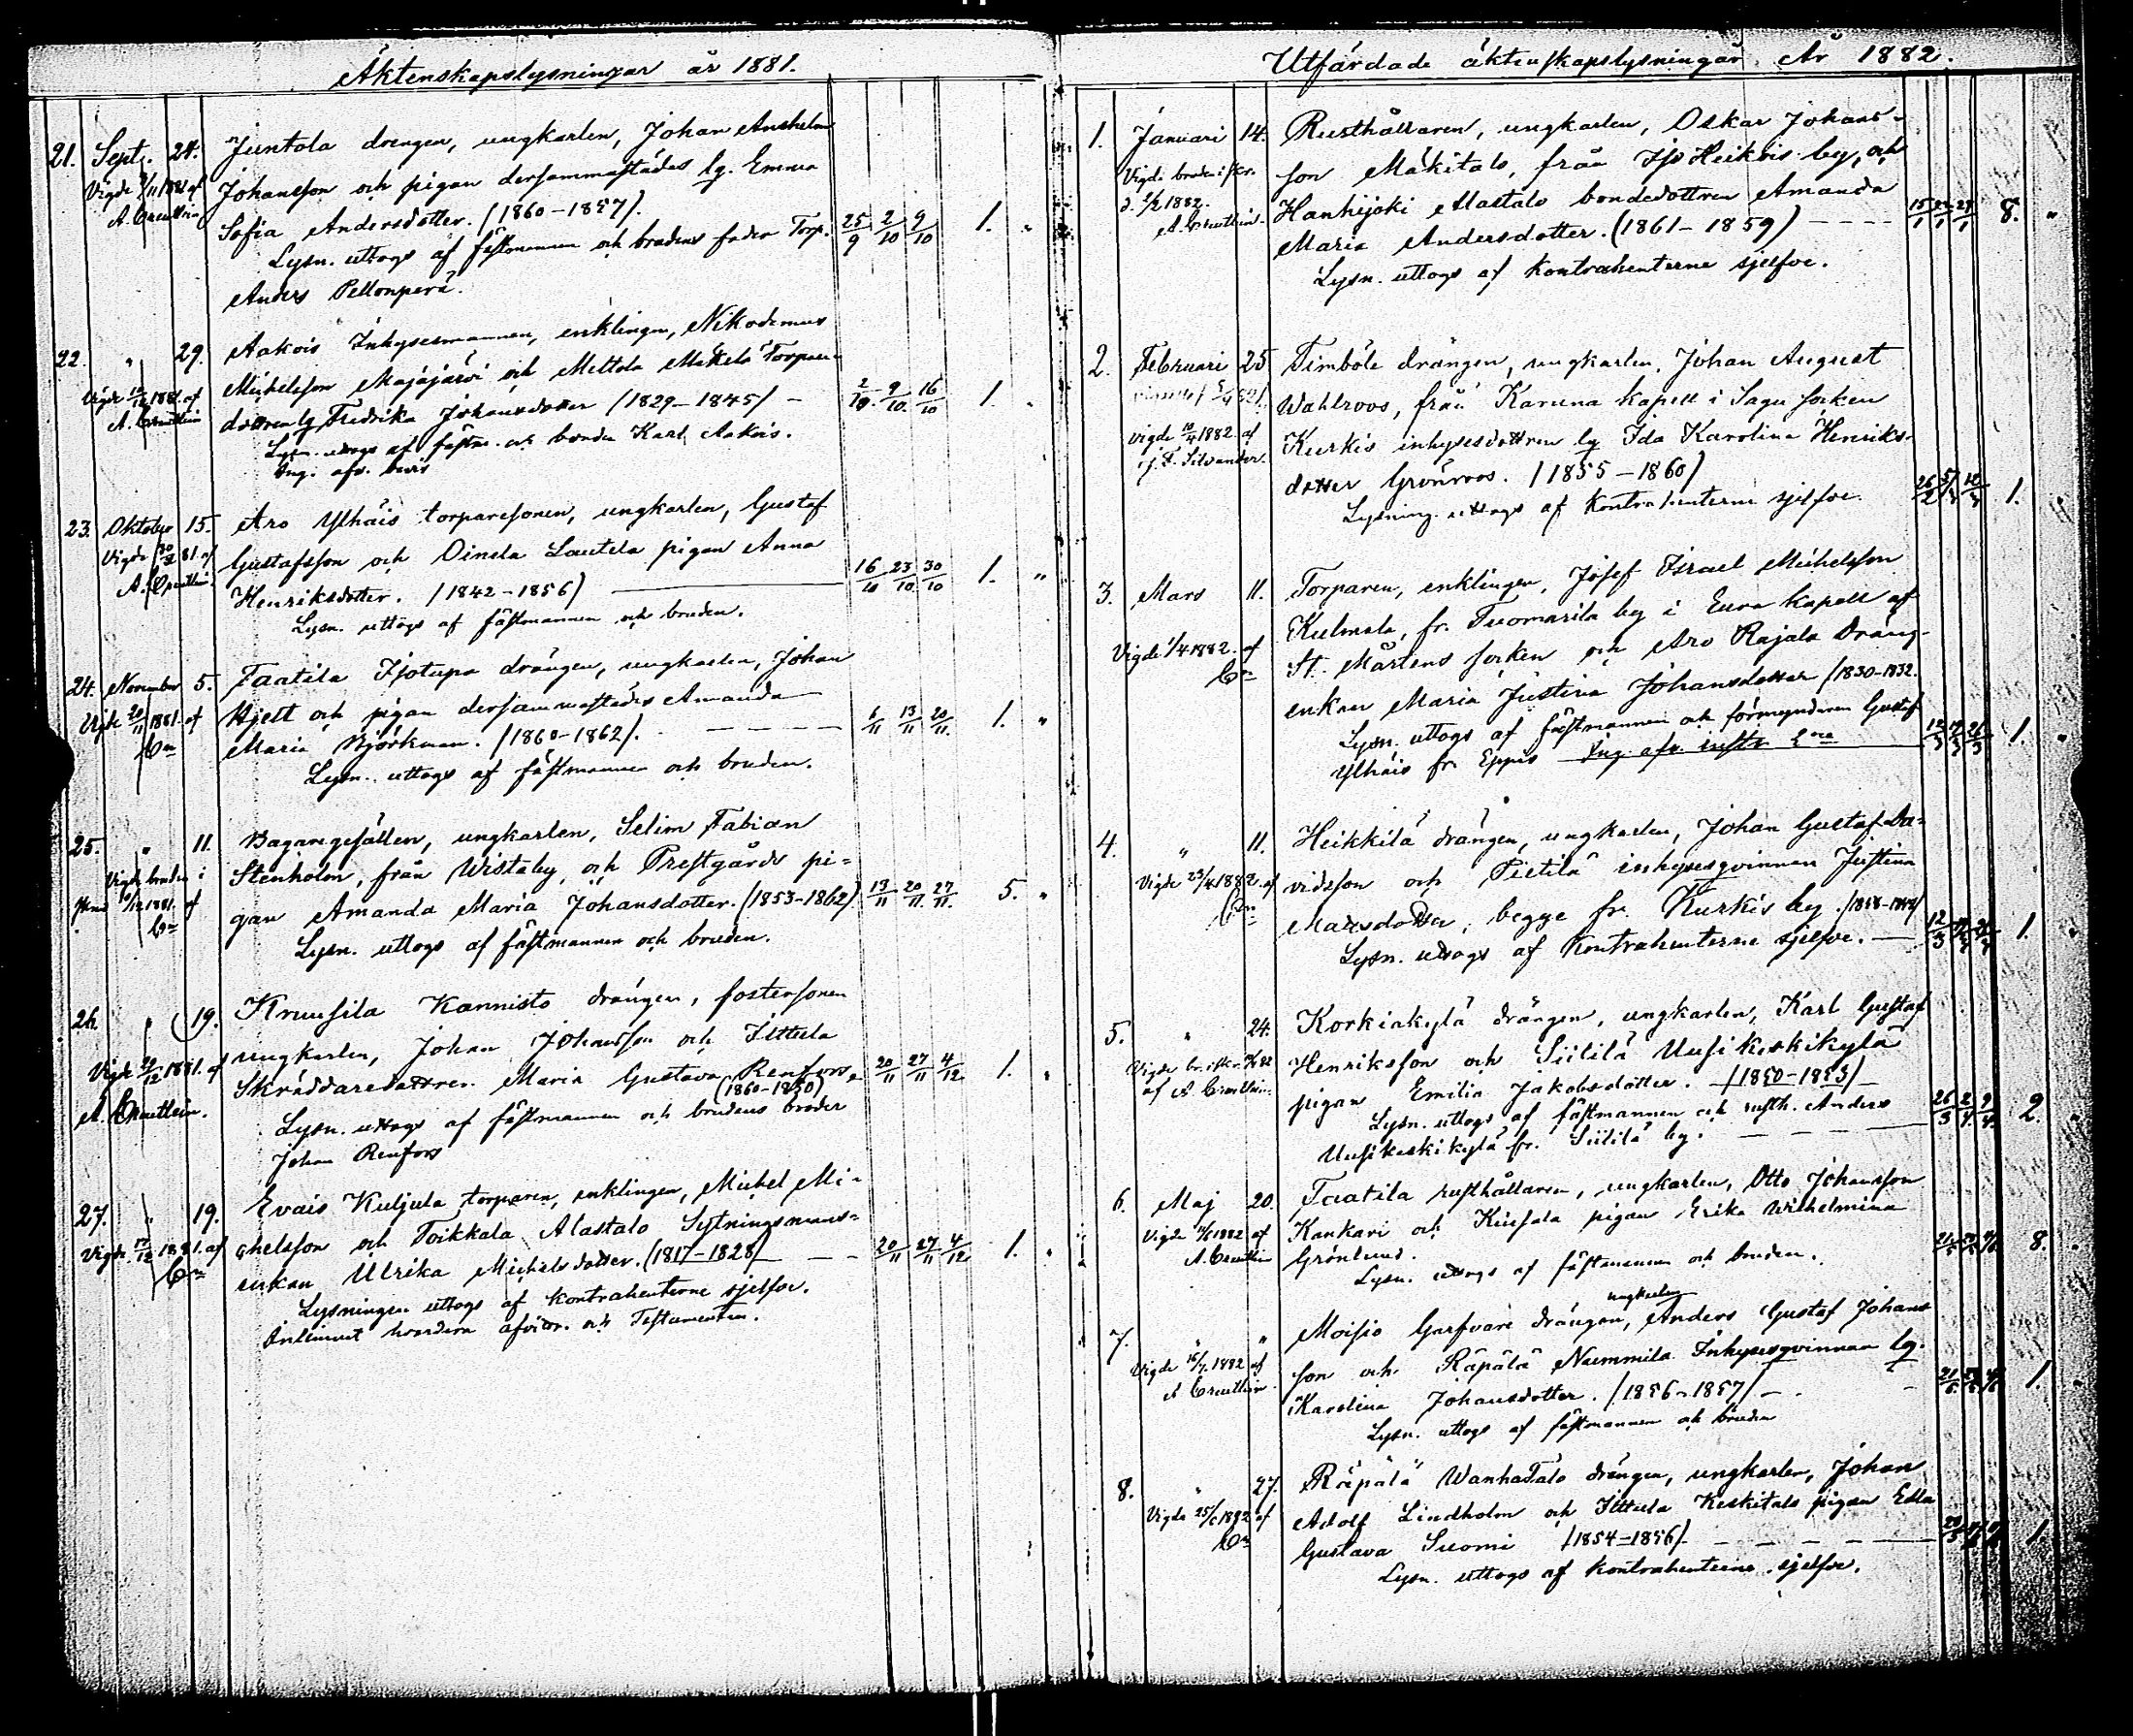 Äktenskapslysningar år 1881.
21. Sept. 24. Juntola drengen, ungkarlen, Johan Anshelm
Johansson och pigan dersammastädes lg. Emma
Sofia Andersdotter. (1860-1857). 25/9 2/10 9/10 1. "
Lysn. uttogs af fästmannen och brudens fader Torp.
Anders Pellonperä.
Vigde 3/11 1881 af
A. Creutlein
22. " 29. Aakois Inhysesmannen, enklingen, Nikodemus
Michelsson Majajärvi och Mettola Mäkelä Torpare-
dottren lg Fredrika Johansdotter (1829-1845) - 2/10. 9/10. 16/10 1. "
Lysn. uttogs af fästm. och bonden Karl Aakois.
Ing. afv. bevis
Vigde 18/12 1881. af
A. Creutlein
23. Oktober 15. Aro Ylhäis torparesonen, ungkarlen, Gustaf
Gustafsson och Oinila Lautela pigan Anna
Henriksdotter. (1842-1856) 16/10 23/10. 30/10 1. "
Lysn. uttogs af fästmannen och bruden.
Vigde 81 af
A. Creutlein.
24. November 5. Taatila Isotupa drängen, ungkarlen, Johan
Hjelt och pigan dersammastädes Amanda
Maria Björkman. (1860-1862). 6/11 13/11 20/11. 1. "
Lysn. uttogs af fästmannen och bruden.
Vigde 20/11 1881. af
Cn
25. " 11. Bagaregesällen, ungkarlen, Selim Fabian
Stenholm, från Wistaby, och Prestgårds pi=
gan Amanda Maria Johansdotter. (1853-1862) 13/11 20/11. 27/11. 5. "
Lysn. uttogs af fästmannen och bruden.
Vigde bruden i
1881. af
Cn
26. " 19. Kruusila Kannisto drängen, fostersonen
ungkarlen, Johan Johansson och Ittula
Skräddaredottren Maria Gustava Renfors. 20/11 27/11 4/12 1. "
(1860-1850)
Lysn. uttogs af fästmannen och brudens broder
Johan Renfors
Vigde 29/12 1881. af
A. Creutlein.
27. " 19. Evais Kuljula torparen, enklingen, Michel Mi-
chelsson och Toikkala Alastalo Sytningsmans=
enkan Ulrika Michelsdotter. (1817-1828) 20/11 27/11 4/12 1. "
Lysningen uttogs af kontrahenterne sjelfve.
Inlemnat hvardera afvittr. och Testamenten.
Vigde 17/12 1881. af
Cn
Utfärdade äktenskapslysningar År 1882.
1. Januari 14. Rusthållaren, ungkarlen, Oskar Johans-
son Mäkitalo, från Iso Heikois by, och
Hanhijoki Alastalo bondedottren Amanda
Maria Andersdotter. (1861-1859) 15/1 22/1 29/1 8. "
Lysn. uttogs af kontrahenterne sjelfve.
Vigde bruden i skr.
1882.
A. Creutlein.
2. Februari 25 Timböle drängen, ungkarlen, Johan August
Wahlroos, från Karuna kapell i Sagu socken
Kurkis inhysesdottren lg Ida Karolina Henriks-
dotter Grönroos. (1855-1860) 26/2 5/3 12/3 1. "
Lysning uttogs af kontrahenterne sjelfve.
Vigde 10/4 1882. af
J. F. Silvander.
3. Mars 11. Torparen, enklingen, Josef Israel Michelsson
Kulmala, fr. Tuomarila by i Eura kapell af
St. Mårtens socken och Aro Rajala Dräng-
enkan Maria Justina Johansdotter (1830-1832.
Lysn. uttogs af fästmannen och förmyndaren Gustaf
Ylhäis fr. Eppis 12/3 19/3 26/3 1. "
Vigde 1/4 1882. af
Cn
4. " 11. Heikkilä drängen, ungkarlen, Johan Gustaf Da=
vidsson och Pietilä inhysesqvinnan Justina
Matsdotter, begge fr. Kurkis by. 12/3 1. "
Lysn. uttogs af Kontrahenterne sjelfve.
Vigde 23/4 1882. af
Cn
5. " 24. Korkiakylä drängen, ungkarlen, Karl Gustaf
Henriksson och Siitilä Uusikeskikylä
pigan Emilia Jakobsdotter. (1850-1853) 26/3 2/4. 9/4. 2. "
Lysn. uttogs af fästmannen och rusth. Anders
Uusikeskikylä fr. Siitilä by.
af A Creutlein.
6. Maj 20. Taatila rusthållaren, ungkarlen, Otto Johansson
Kankari och Kuisala pigan Erika Wilhelmina
Grönlund. 21/5 28/5 4/6 8. "
Lysn. uttogs af fästmannen och bruden.
Vigde 1882 af
A. Creutlein
7. " " Moisio Garfvare drängen, ungkarlen Anders Gustaf Johans
son och Räpälä Nummila Inhysesqvinnan lg.
Karolina Johansdotter. (1856-1857) 21/5 28/5 4/6 1. "
Lysn. uttogs af fästmannen och bruden
Vigde 16/7. 1882 af
A Creutlein.
8. " 27. Räpälä Wanhatalo drängen, ungkarlen, Johan
Adolf Lindholm och Ittula Keskitalo pigan Edla
Gustava Suomi (1854-1856) 28/5 1. "
Lysn. uttogs af kontrahenterne sjelfve.
Vigde 25/6 1882 af
Cn